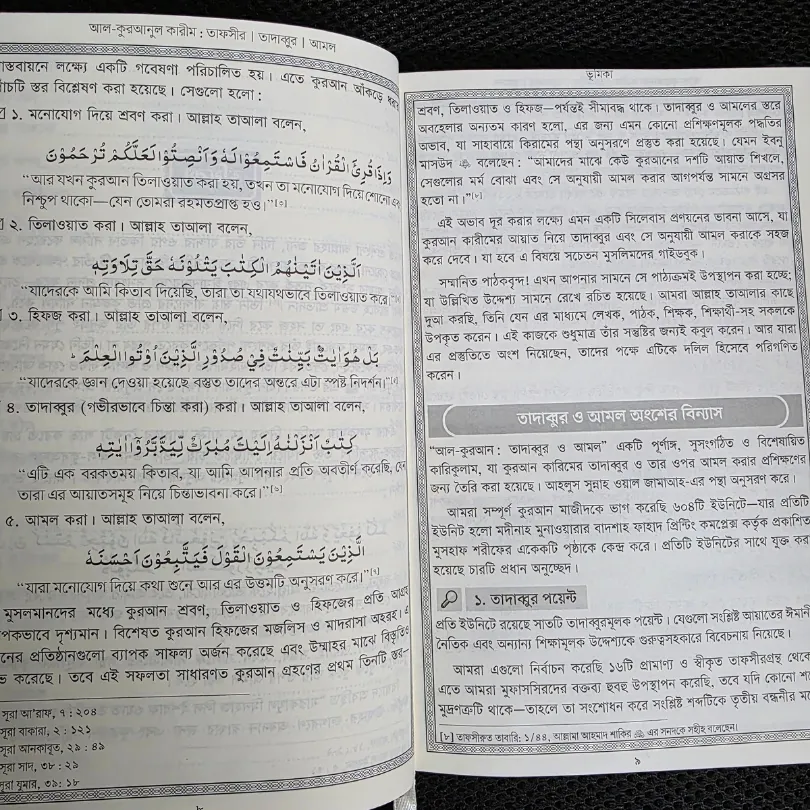 আল-কুরআনুল কারীম : তাফসীর | তাদাব্বুর | আমল
াস্তবায়নে লক্ষ্যে একটি গবেষণা পরিচালিত হয়। এতে কুরআন আঁকড়ে ধরার
াঁচটি স্তর বিশ্লেষণ করা হয়েছে। সেগুলো হলো :
১. মনোযোগ দিয়ে শ্রবণ করা। আল্লাহ তাআলা বলেন,
وَإِذَا قُرِئَ الْقُرْاٰنُ فَاسْتَمِعُوْا لَهٗ وَاَنْصِتُوْا لَعَلَّكُمْ تُرْحَمُوْنَ
“আর যখন কুরআন তিলাওয়াত করা হয়, তখন তা মনোযোগ দিয়ে শোনো এবং
নিশ্চুপ থাকো—যেন তোমরা রহমতপ্রাপ্ত হও।”[৩]
২. তিলাওয়াত করা। আল্লাহ তাআলা বলেন,
اَلَّذِيْنَ اٰتَيْنٰهُمُ الْكِتٰبَ يَتْلُوْنَهٗ حَقَّ تِلَاوَتِهٖ
“যাদেরকে আমি কিতাব দিয়েছি, তারা তা যথাযথভাবে তিলাওয়াত করে।”
৩. হিফজ করা। আল্লাহ তাআলা বলেন,
بَلْ هُوَ اٰيٰتٌۢ بَيِّنٰتٌ فِيْ صُدُوْرِ الَّذِيْنَ اُوْتُوا الْعِلْمَ ؕ
“যাদেরকে জ্ঞান দেওয়া হয়েছে বস্তুত তাদের অন্তরে এটা স্পষ্ট নিদর্শন।”
৪. তাদাব্বুর (গভীরভাবে চিন্তা করা) করা। আল্লাহ তাআলা বলেন,
كِتٰبٌ اَنْزَلْنٰهُ اِلَيْكَ مُبٰرَكٌ لِّيَدَّبَّرُوْٓا اٰيٰتِهٖ
“এটি এক বরকতময় কিতাব, যা আমি আপনার প্রতি অবতীর্ণ করেছি, যেন
তারা এর আয়াতসমূহ নিয়ে চিন্তাভাবনা করে।”[৬]
৫. আমল করা। আল্লাহ তাআলা বলেন,
الَّذِيْنَ يَسْتَمِعُوْنَ الْقَوْلَ فَيَتَّبِعُوْنَ اَحْسَنَهٗ
“যারা মনোযোগ দিয়ে কথা শুনে আর এর উত্তমটি অনুসরণ করে।”[৭]
মুসলমানদের মধ্যে কুরআন শ্রবণ, তিলাওয়াত ও হিফজের প্রতি আগ্রহ
পকভাবে দৃশ্যমান। বিশেষত কুরআন হিফজের মজলিস ও মাদরাসা অহরহ।
নের প্রতিষ্ঠানগুলো ব্যাপক সাফল্য অর্জন করেছে এবং উম্মাহর মাঝে বিস্তৃতি
করেছে। তবে এই সফলতা সাধারণত কুরআন গ্রহণের প্রথম তিনটি স্তর—
সূরা আ'রাফ, ৭ : ২০৪
সূরা বাকারা, ২ : ১২১
সূরা আনকাবূত, ২৯ : ৪৯
সূরা সাদ, ৩৮ : ২৯
সূরা যুমার, ৩৯: ১৮
৮
ভূমিকা
শ্রবণ, তিলাওয়াত ও হিফজ—পর্যন্তই সীমাবদ্ধ থাকে। তাদাব্বুর ও আমলের স্তরে
অবহেলার অন্যতম কারণ হলো, এর জন্য এমন কোনো প্রশিক্ষণমূলক পদ্ধতির
অভাব, যা সাহাবায়ে কিরামের পন্থা অনুসরণে প্রস্তুত করা হয়েছে। যেমন ইবনু
মাসউদ বলেছেন : “আমাদের মাঝে কেউ কুরআনের দশটি আয়াত শিখলে,
সেগুলোর মর্ম বোঝা এবং সে অনুযায়ী আমল করার আগপর্যন্ত সামনে অগ্রসর
হতো না।”[৮]
এই অভাব দূর করার লক্ষ্যে এমন একটি সিলেবাস প্রণয়নের ভাবনা আসে, যা
কুরআন কারীমের আয়াত নিয়ে তাদাব্বুর এবং সে অনুযায়ী আমল করাকে সহজ
করে দেবে। যা হবে এ বিষয়ে সচেতন মুসলিমদের গাইডবুক।
সম্মানিত পাঠকবৃন্দ! এখন আপনার সামনে সে পাঠ্যক্রমই উপস্থাপন করা হচ্ছে;
যা উল্লিখিত উদ্দেশ্য সামনে রেখে রচিত হয়েছে। আমরা আল্লাহ তাআলার কাছে
দুআ করছি, তিনি যেন এর মাধ্যমে লেখক, পাঠক, শিক্ষক, শিক্ষার্থী-সহ সকলকে
উপকৃত করেন। এই কাজকে শুধুমাত্র তাঁর সন্তুষ্টির জন্যই কবুল করেন। আর যারা
এর প্রস্তুতিতে অংশ নিয়েছেন, তাদের পক্ষে এটিকে দলিল হিসেবে পরিগণিত
করেন।
তাদাব্বুর ও আমল অংশের বিন্যাস
“আল-কুরআন : তাদাব্বুর ও আমল” একটি পূর্ণাঙ্গ, সুসংগঠিত ও বিশেষায়িত
কারিকুলাম, যা কুরআন কারিমের তাদাব্বুর ও তার ওপর আমল করার প্রশিক্ষণের
জন্য তৈরি করা হয়েছে। আহলুস সুন্নাহ ওয়াল জামাআহ-এর পন্থা অনুসরণ করে।
আমরা সম্পূর্ণ কুরআন মাজীদকে ভাগ করেছি ৬০৪টি ইউনিটে—যার প্রতিটি
ইউনিট হলো মদীনাহ মুনাওয়ারার বাদশাহ ফাহাদ প্রিন্টিং কমপ্লেক্স কর্তৃক প্রকাশিত
মুসহাফ শরীফের একেকটি পৃষ্ঠাকে কেন্দ্র করে। প্রতিটি ইউনিটের সাথে যুক্ত করা
হয়েছে চারটি প্রধান অনুচ্ছেদ।
১. তাদাব্বুর পয়েন্ট
প্রতি ইউনিটে রয়েছে সাতটি তাদাব্বুরমূলক পয়েন্ট। যেগুলো সংশ্লিষ্ট আয়াতের ঈমানী
নৈতিক এবং অন্যান্য শিক্ষামূলক উদ্দেশ্যকে গুরুত্বসহকারে বিবেচনায় নিয়েছে।
আমরা এগুলো নির্বাচন করেছি ১৬টি প্রামাণ্য ও স্বীকৃত তাফসীরগ্রন্থ থেকে
এতে আমরা মুফাসসিরদের বক্তব্য হুবহু উপস্থাপন করেছি, তবে যদি কোনো শব্দে
মুদ্রণত্রুটি থাকে—তাহলে তা সংশোধন করে সংশ্লিষ্ট শব্দটিকে তৃতীয় বন্ধনীর মধ্যে
[৮] তাফসীরুত তাবারি: ১/৪৪, আল্লামা আহমাদ শাকির এর সনদকে সহীহ বলেছেন।
৯